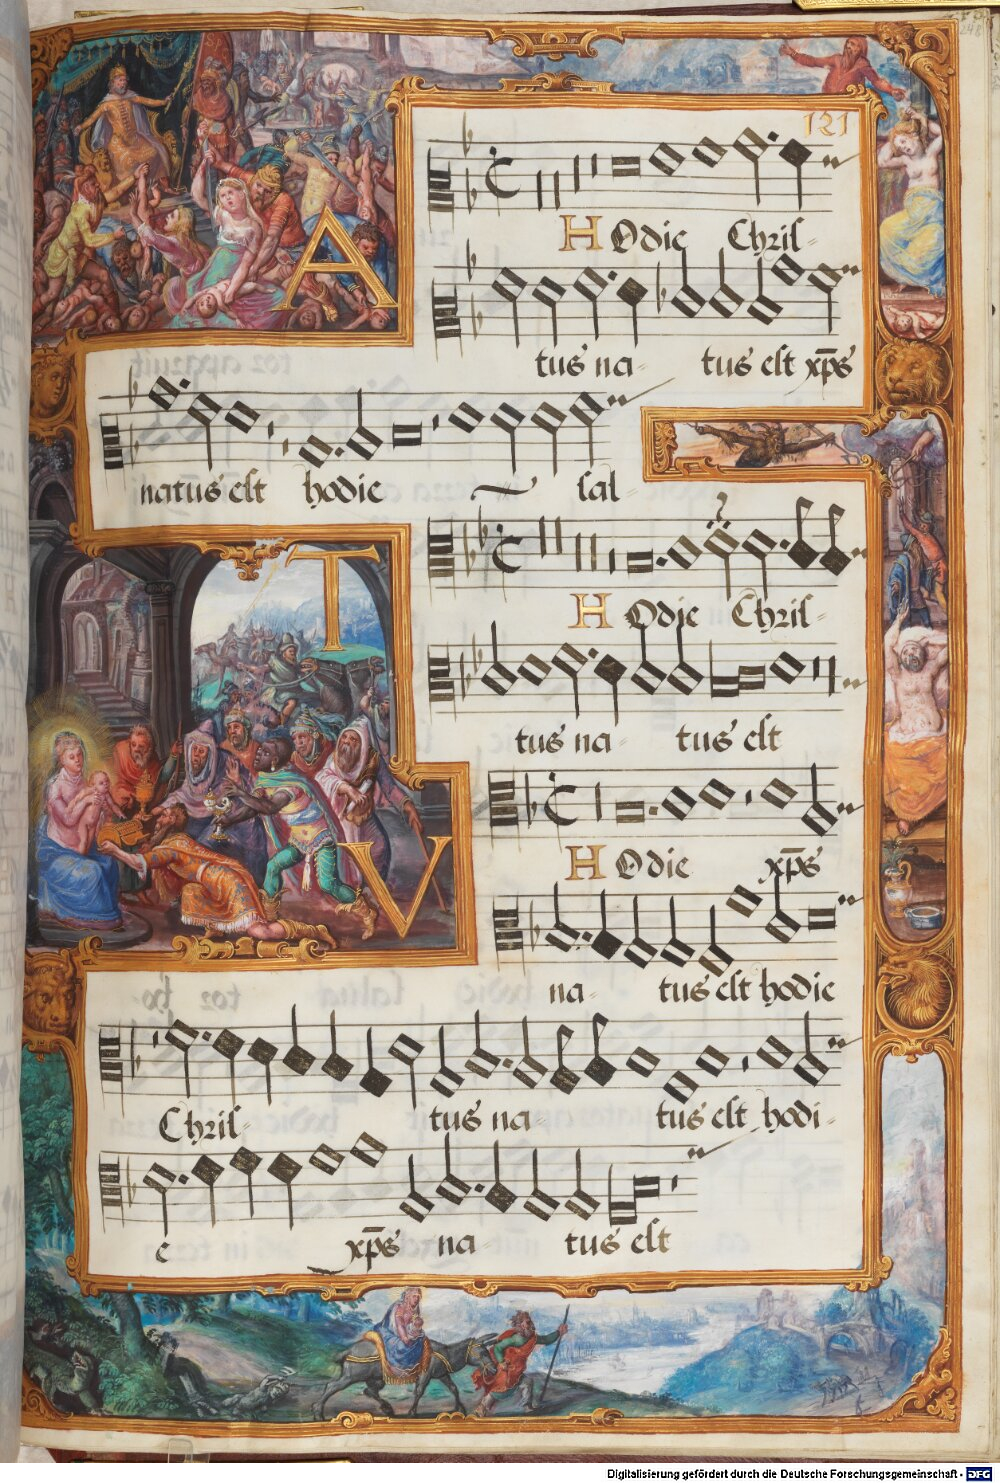 121
A
HOdie Chris-
tus na- tus est xp̄s
natus est hodie sal-
T
HOdie Chris-
tus na- tus est
V
HOdie xp̄s
na- tus est hodie
Chris- tus na- tus est hodi-
e xp̄s na- tus est
Digitalisierung gefördert durch die Deutsche Forschungsgemeinschaft - DFG